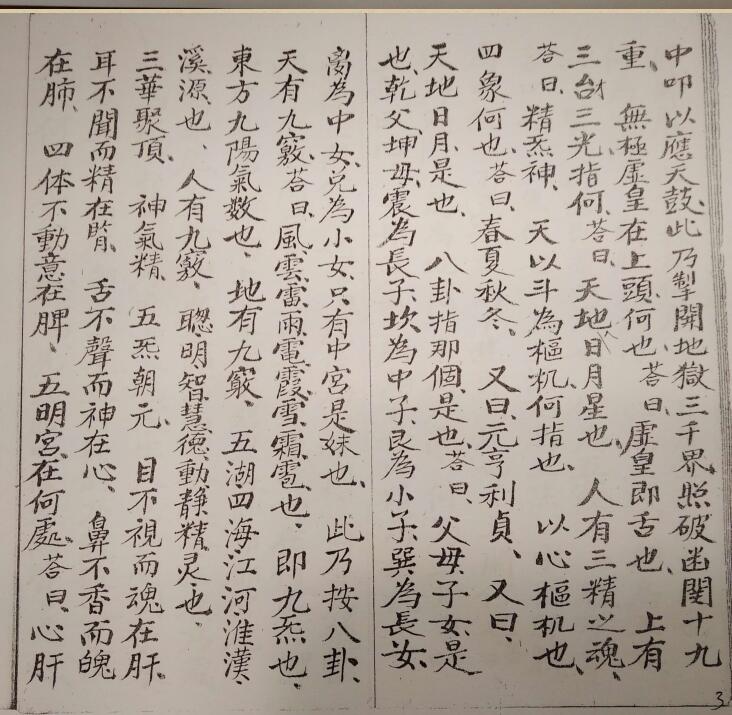 中叩以應天鼓、此乃掣開地獄三千界、照破幽関十九
重、無極虛皇在上頭、何也、荅曰、虛皇即舌也、上有
三台、三光指何、荅曰、天地日月星也、人有三精之魂、
荅曰、精炁神、天以斗為樞机、何指也、以心樞机也、
四象何也、荅曰、春夏秋冬、又曰、元亨利貞、又曰、
天地日月、是也、八卦指那個、是也、荅曰、父母子女、是
也、乾父、坤母、震為長子、坎為中子、艮為小子、巽為長女、
离為中女、兑為小女、只有中宮是妹也、此乃按八卦、
天有九竅、荅曰、風雲雷雨電霞雪霜雹也、即九炁也、
東方九陽氣数也、地有九竅、五湖四海江河淮漢、
溪源也、人有九竅、聰明智慧德、動静精灵也、
三華聚頂、神氣精、五炁朝元、目不視而魂在肝、
耳不聞而精在腎、舌不聲而神在心、鼻不香而魄
在肺、四体不動意在脾、五明宮在何處、荅曰、心肝
3